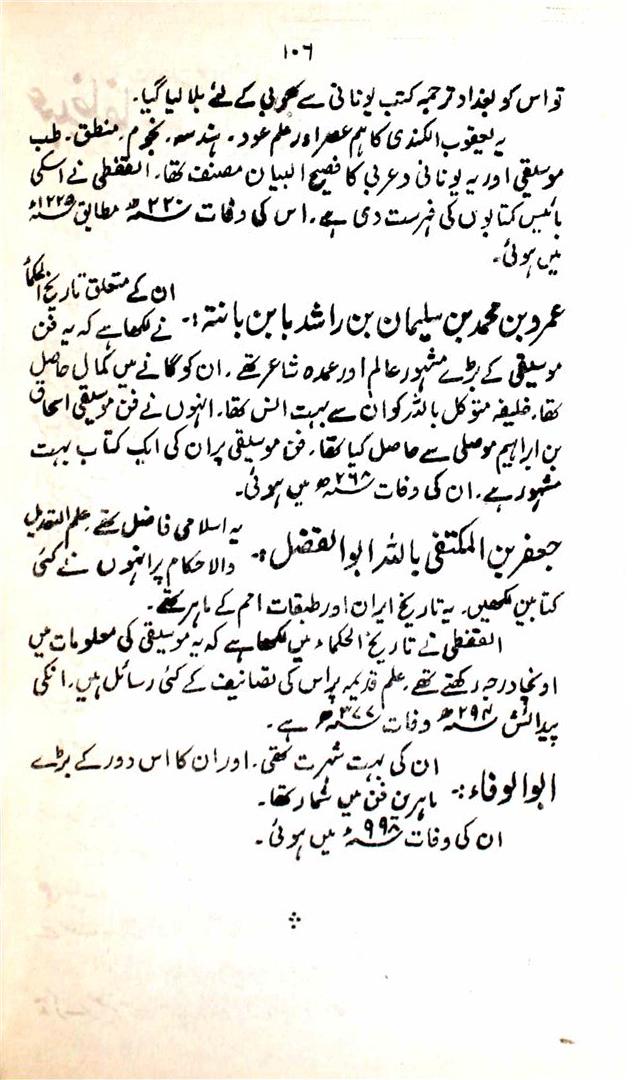 ۱۰۶
تو اس کو بغداد ترجمہ کتب یونانی سے عربی کے لئے بلا لیا گیا۔
یہ یعقوب الکندی کا ہم عصر اور علم عود۔ ہندسہ۔ نجوم۔ منطق۔ طب
موسیقی اور یہ یونانی و عربی کا فصیح البیان مصنف تھا۔ القفطی نے اسکی
بائیس کتابوں کی فہرست دی ہے۔ اس کی وفات ۲۲۰ھ مطابق ۱۲۲۵ء
میں ہوئی۔
ان کے متعلق تاریخ الحکماُ
عمرو بن محمد بن سلیمان بن راشد بابن بانتہ:۔ نے لکھا ہے کہ یہ فن
موسیقی کے بڑے مشہور عالم اور عمدہ شاعر تھے۔ ان کو گانے میں کمال حاصل
تھا۔ خلیفہ متوکل باللہ کو ان سے بہت انس تھا۔ انہوں نے فن موسیقی اسحاق
بن ابراہیم موصلی سے حاصل کیا تھا۔ فن موسیقی پر ان کی ایک کتاب بہت
مشہور ہے۔ ان کی وفات ۲۶۸ھ میں ہوئی۔
یہ اسلامی فاضل تھے۔ علم التعدیل
جعفر بن المکتفی باللہ ابو الفضل:۔ والاحکام پر انہوں نے کئی
کتابیں لکھیں۔ یہ تاریخ ایران اور طبقات امم کے ماہر تھے۔
القفطی نے تاریخ الحکماء میں لکھا ہے کہ یہ موسیقی کی معلومات میں
اونچا درجہ رکھتے تھے۔ علم قدیمہ پر اس کی تصانیف کے کئی رسائل ہیں۔ انکی
پیدائش ۲۹۴ھ وفات ۳۷۷ھ ہے۔
ان کی بہت شہرت تھی۔ اور ان کا اس دور کے بڑے
ابوالوفاء:۔ ماہرین فن میں شمار تھا۔
ان کی وفات ۹۹۸ء میں ہوئی۔